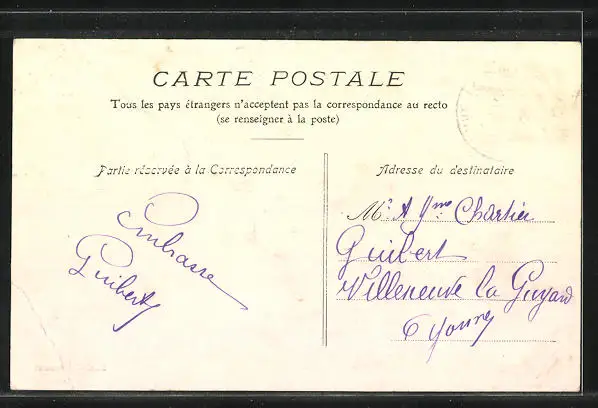 CARTE POSTALE
Tous les pays étrangers n'acceptent pas la correspondance au recto
(se renseigner à la poste)
Partie réservée à la Correspondance
Adresse du destinataire
Embrasse
Guibert
Mr & Mme Chartier
Guibert
Villeneuve la Guyard
Yonne